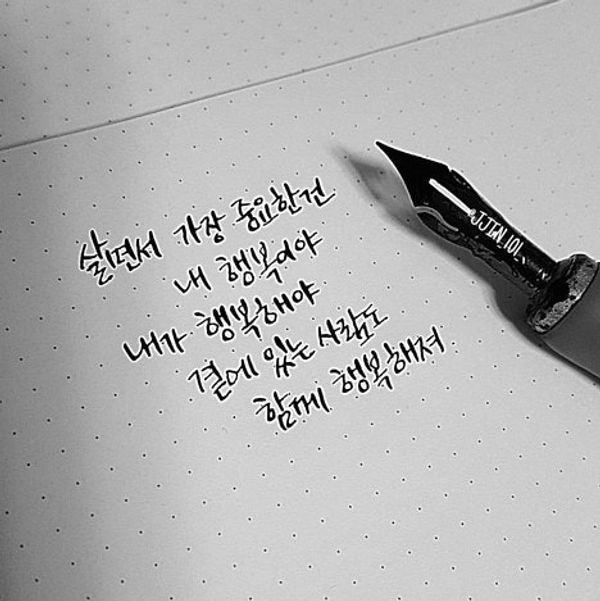 살면서 가장 중요한건
내 행복이야
내가 행복해야
곁에 있는 사람도
함께 행복해져
JJIN_101